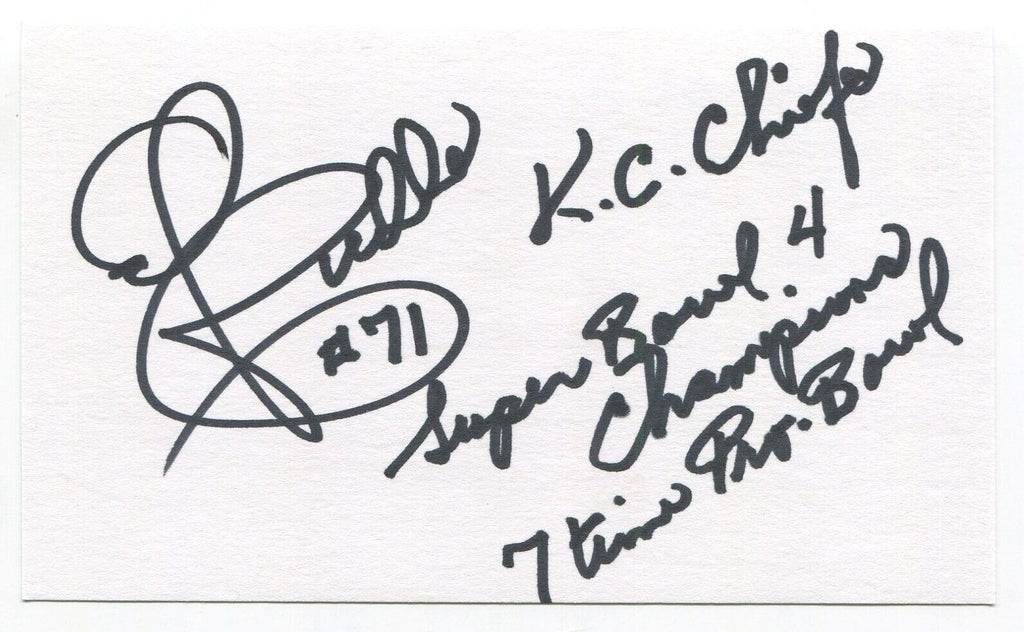 Ed Budde
#71
K.C. Chiefs
Super Bowl. 4
Champions
7 time Pro. Bowl